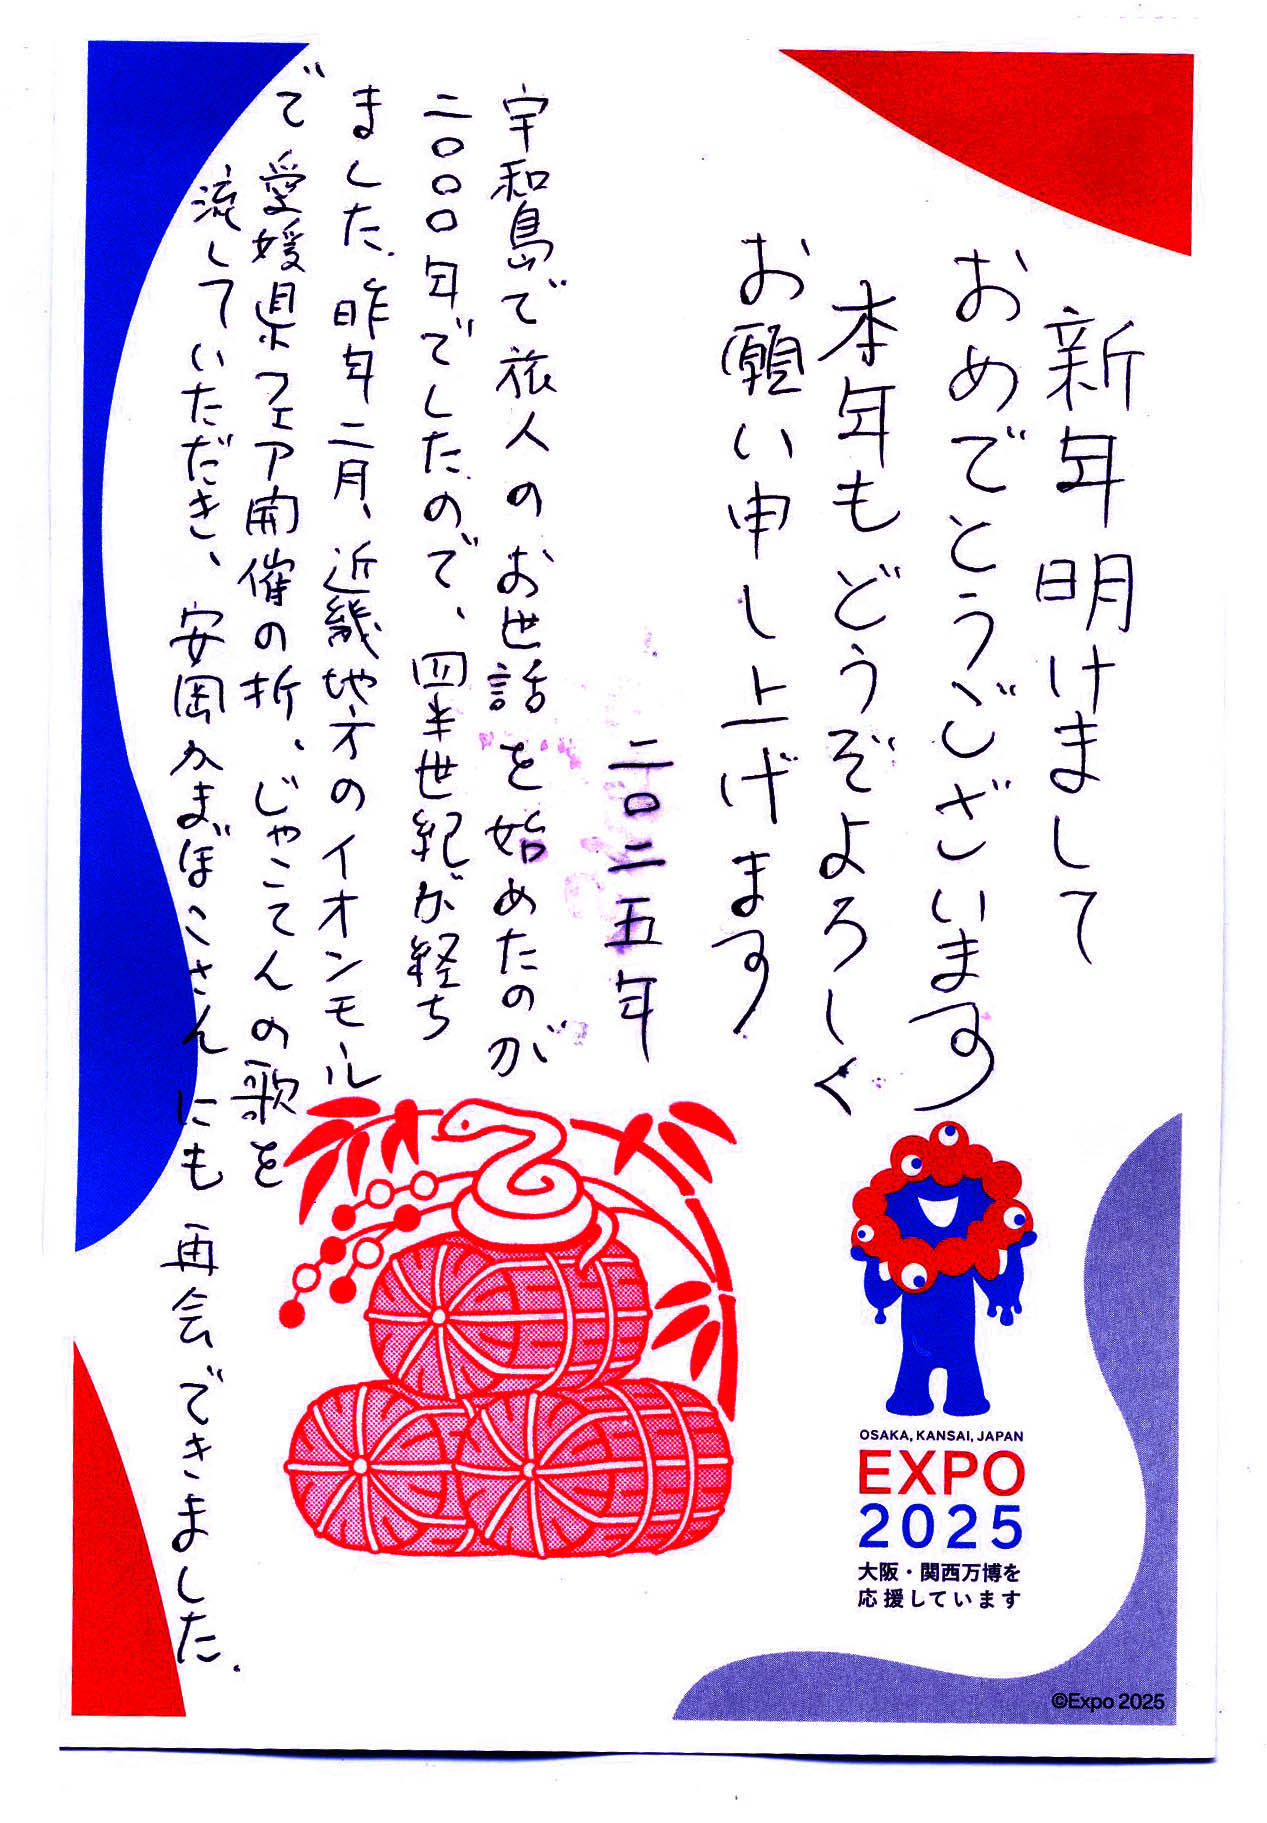 新年明けまして
おめでとうございます
本年もどうぞよろしく
お願い申し上げます
二〇二五年
宇和島で旅人のお世話を始めたのが
二〇〇〇年でしたので、四半世紀が経ち
ました。昨年二月、近畿地方のイオンモール
で愛媛県フェア開催の折、じゃこてんの歌を
流していただき、安岡かまぼこさんにも再会できました。
OSAKA, KANSAI, JAPAN
EXPO
2025
大阪・関西万博を
応援しています
©Expo 2025